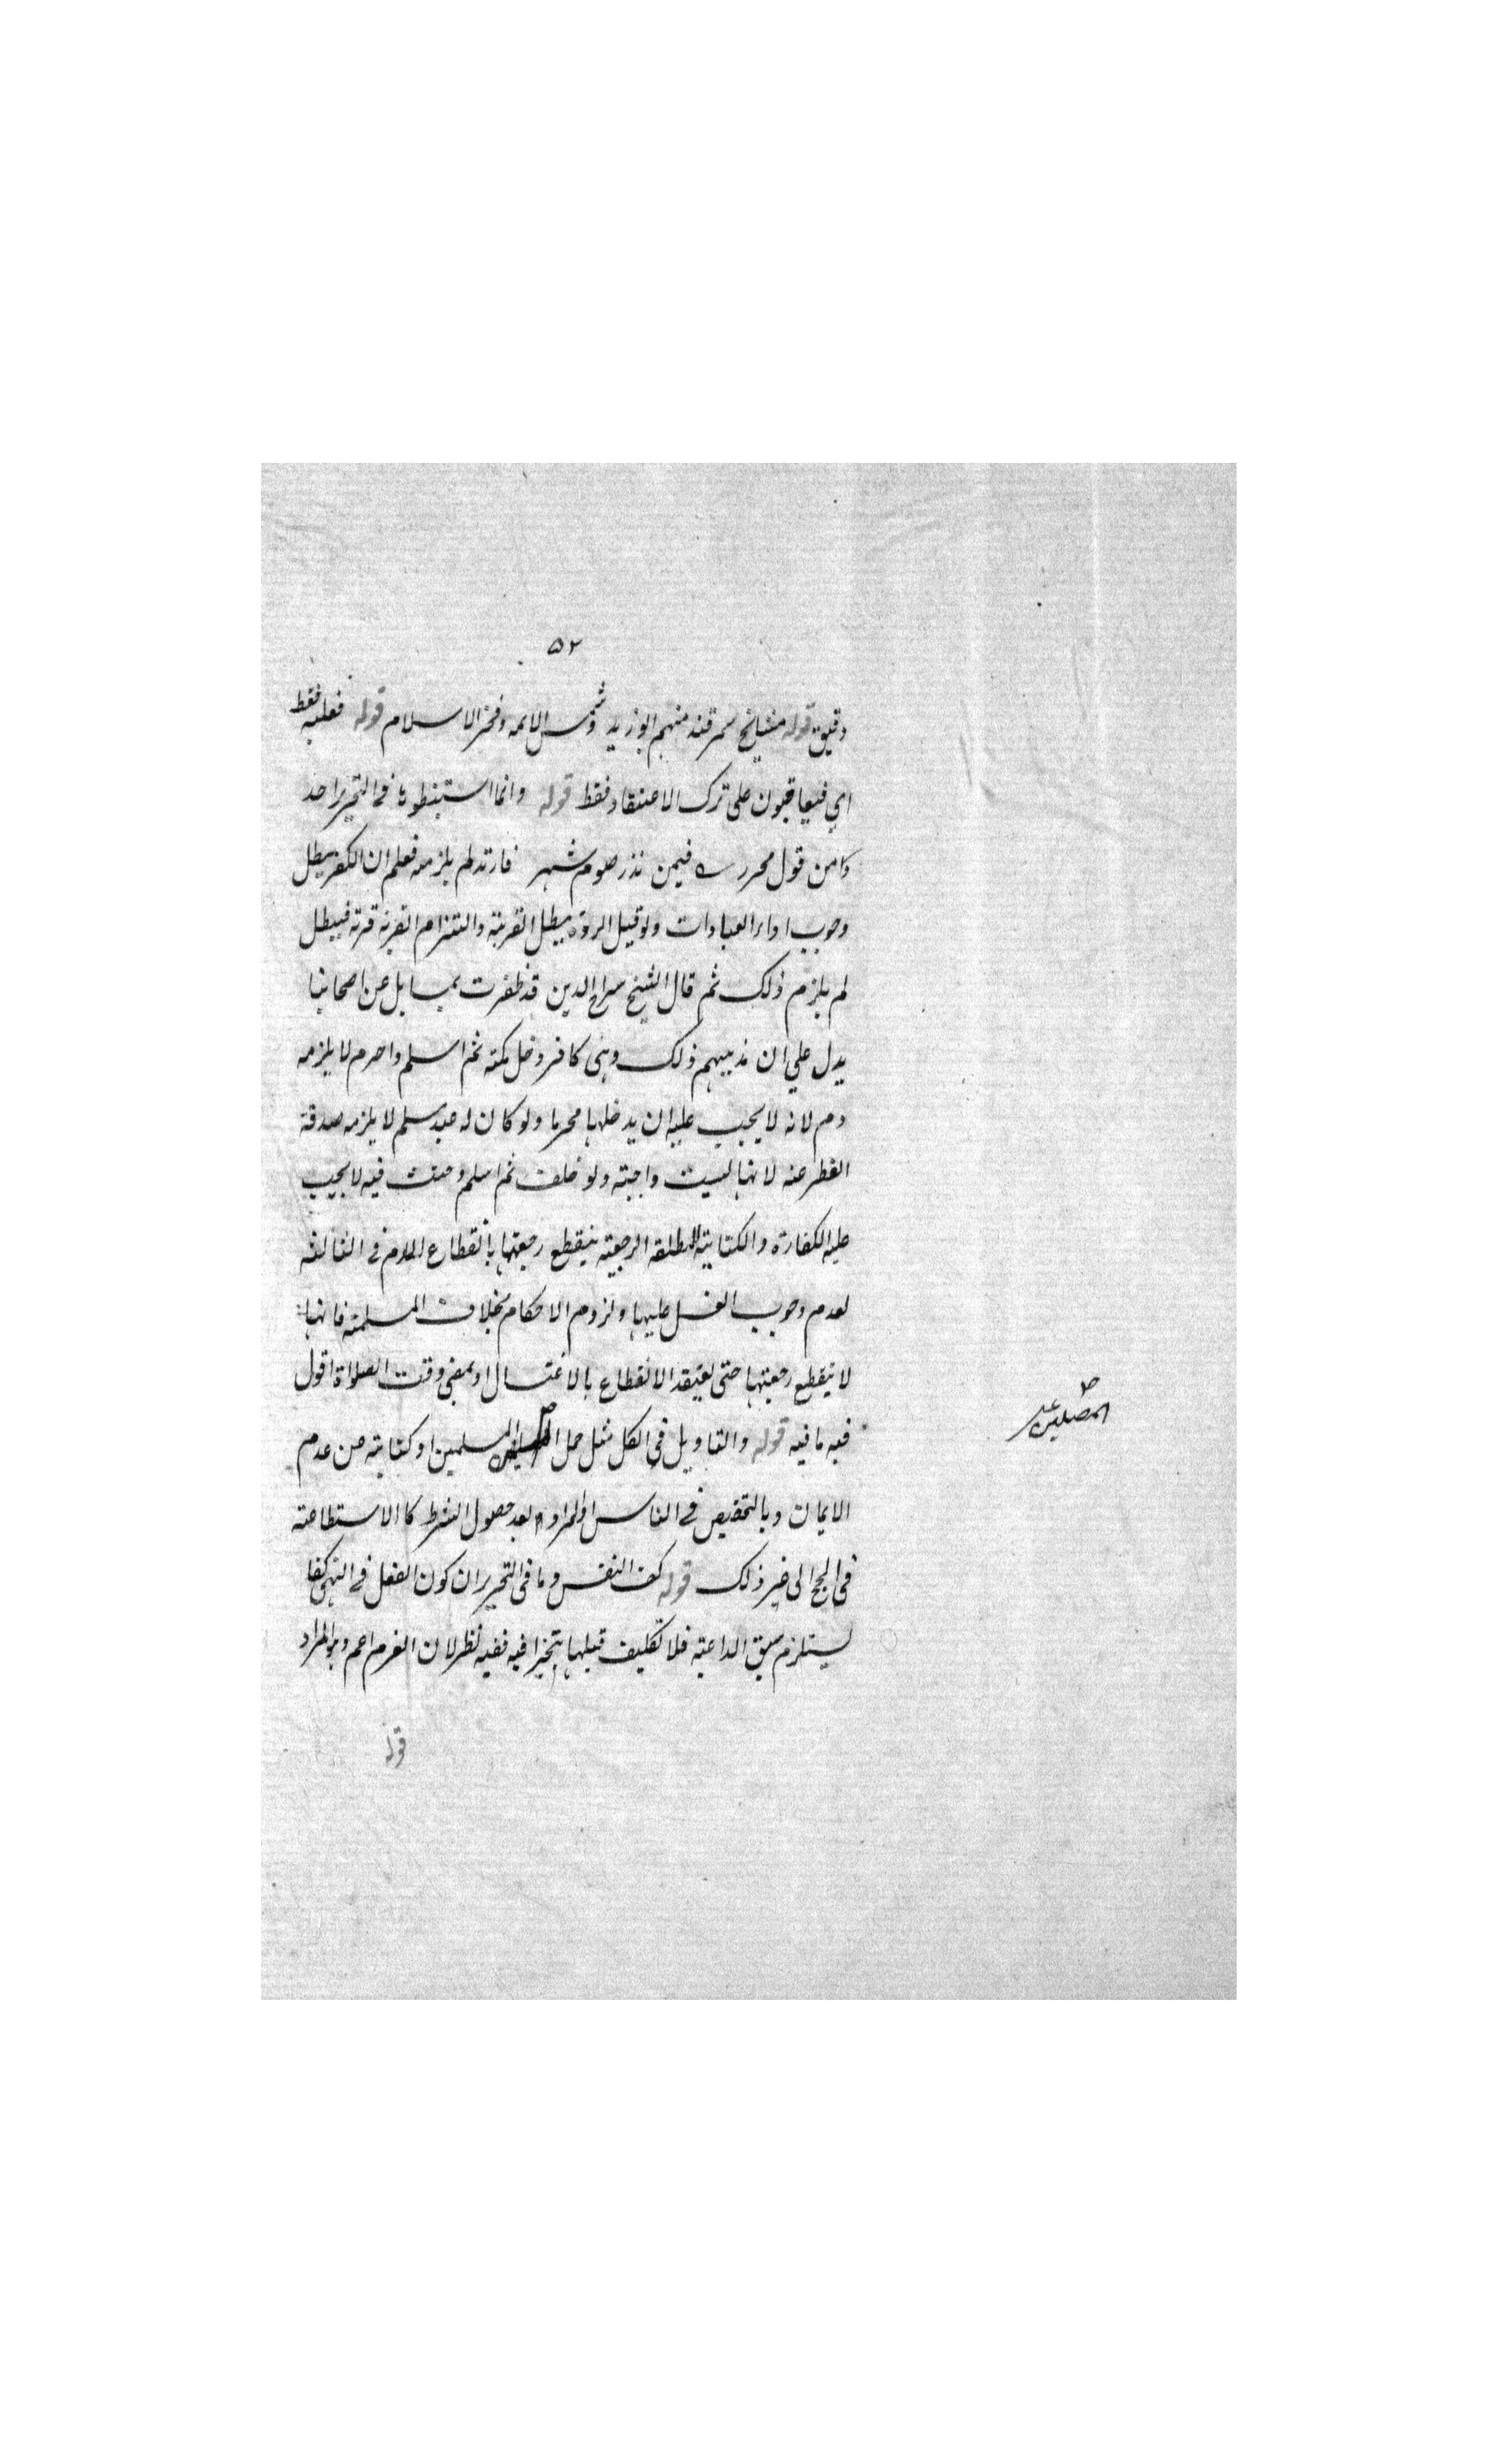 ٥٢
دقيق قوله مشايخ سمرقند منهم ابو زيد وشمس الائمه وفخر الاسلام قوله فعليه فقط
اي فيعاقبون على ترك الاعتقاد فقط قوله وانما استنبطوه في التحرير اخذ
وا من قول محمد فيمن نذر صوم شهر فارتد لم يلزمه فعلم ان الكفر يبطل
وجوب اداء العبادات ولو قيل الردة يبطل القربة والتزام القربة قربة فيبطل
لم يلزم ذلك ثم قال الشيخ سراج الدين قد ظفرت بمسايل عن اصحابنا
يدل علي ان مذهبهم ذلك وهى كافر دخل مكة ثم اسلم واحرم لا يلزمه
دم لانه لا يجب عليه ان يدخلها محرما ولو كان له عبد مسلم لا يلزمه صدقة
الفطر عنه لانها ليست واجبة ولو حلف ثم اسلم وحنث فيه لا يجب
عليه الكفارة والكتابية المطلقة الرجعية ينقطع رجعتها بانقطاع الدم في الثالثة
لعدم وجوب الغسل عليها ولزوم الاحكام بخلاف المسلمة فانها
لا ينقطع رجعتها حتى يعتقد الانقطاع بالاغتسال او بمضي وقت الصلواة اقول
فيه ما فيه قوله والتاويل في الكل مثل حمل المسلمين او كناية عن عدم
المصلين على
الايمان وبالتخصيص في الناس او المراد بعد حصول الشرط كالاستطاعة
في الحج الى غير ذلك قوله كف النفس وما في التحرير ان كون الفعل في النهى كفا
يستلزم سبق الداعية فلا تكليف قبلها تنجيزا فيه ففيه نظر لان العزم اعم وهو المراد
قوله